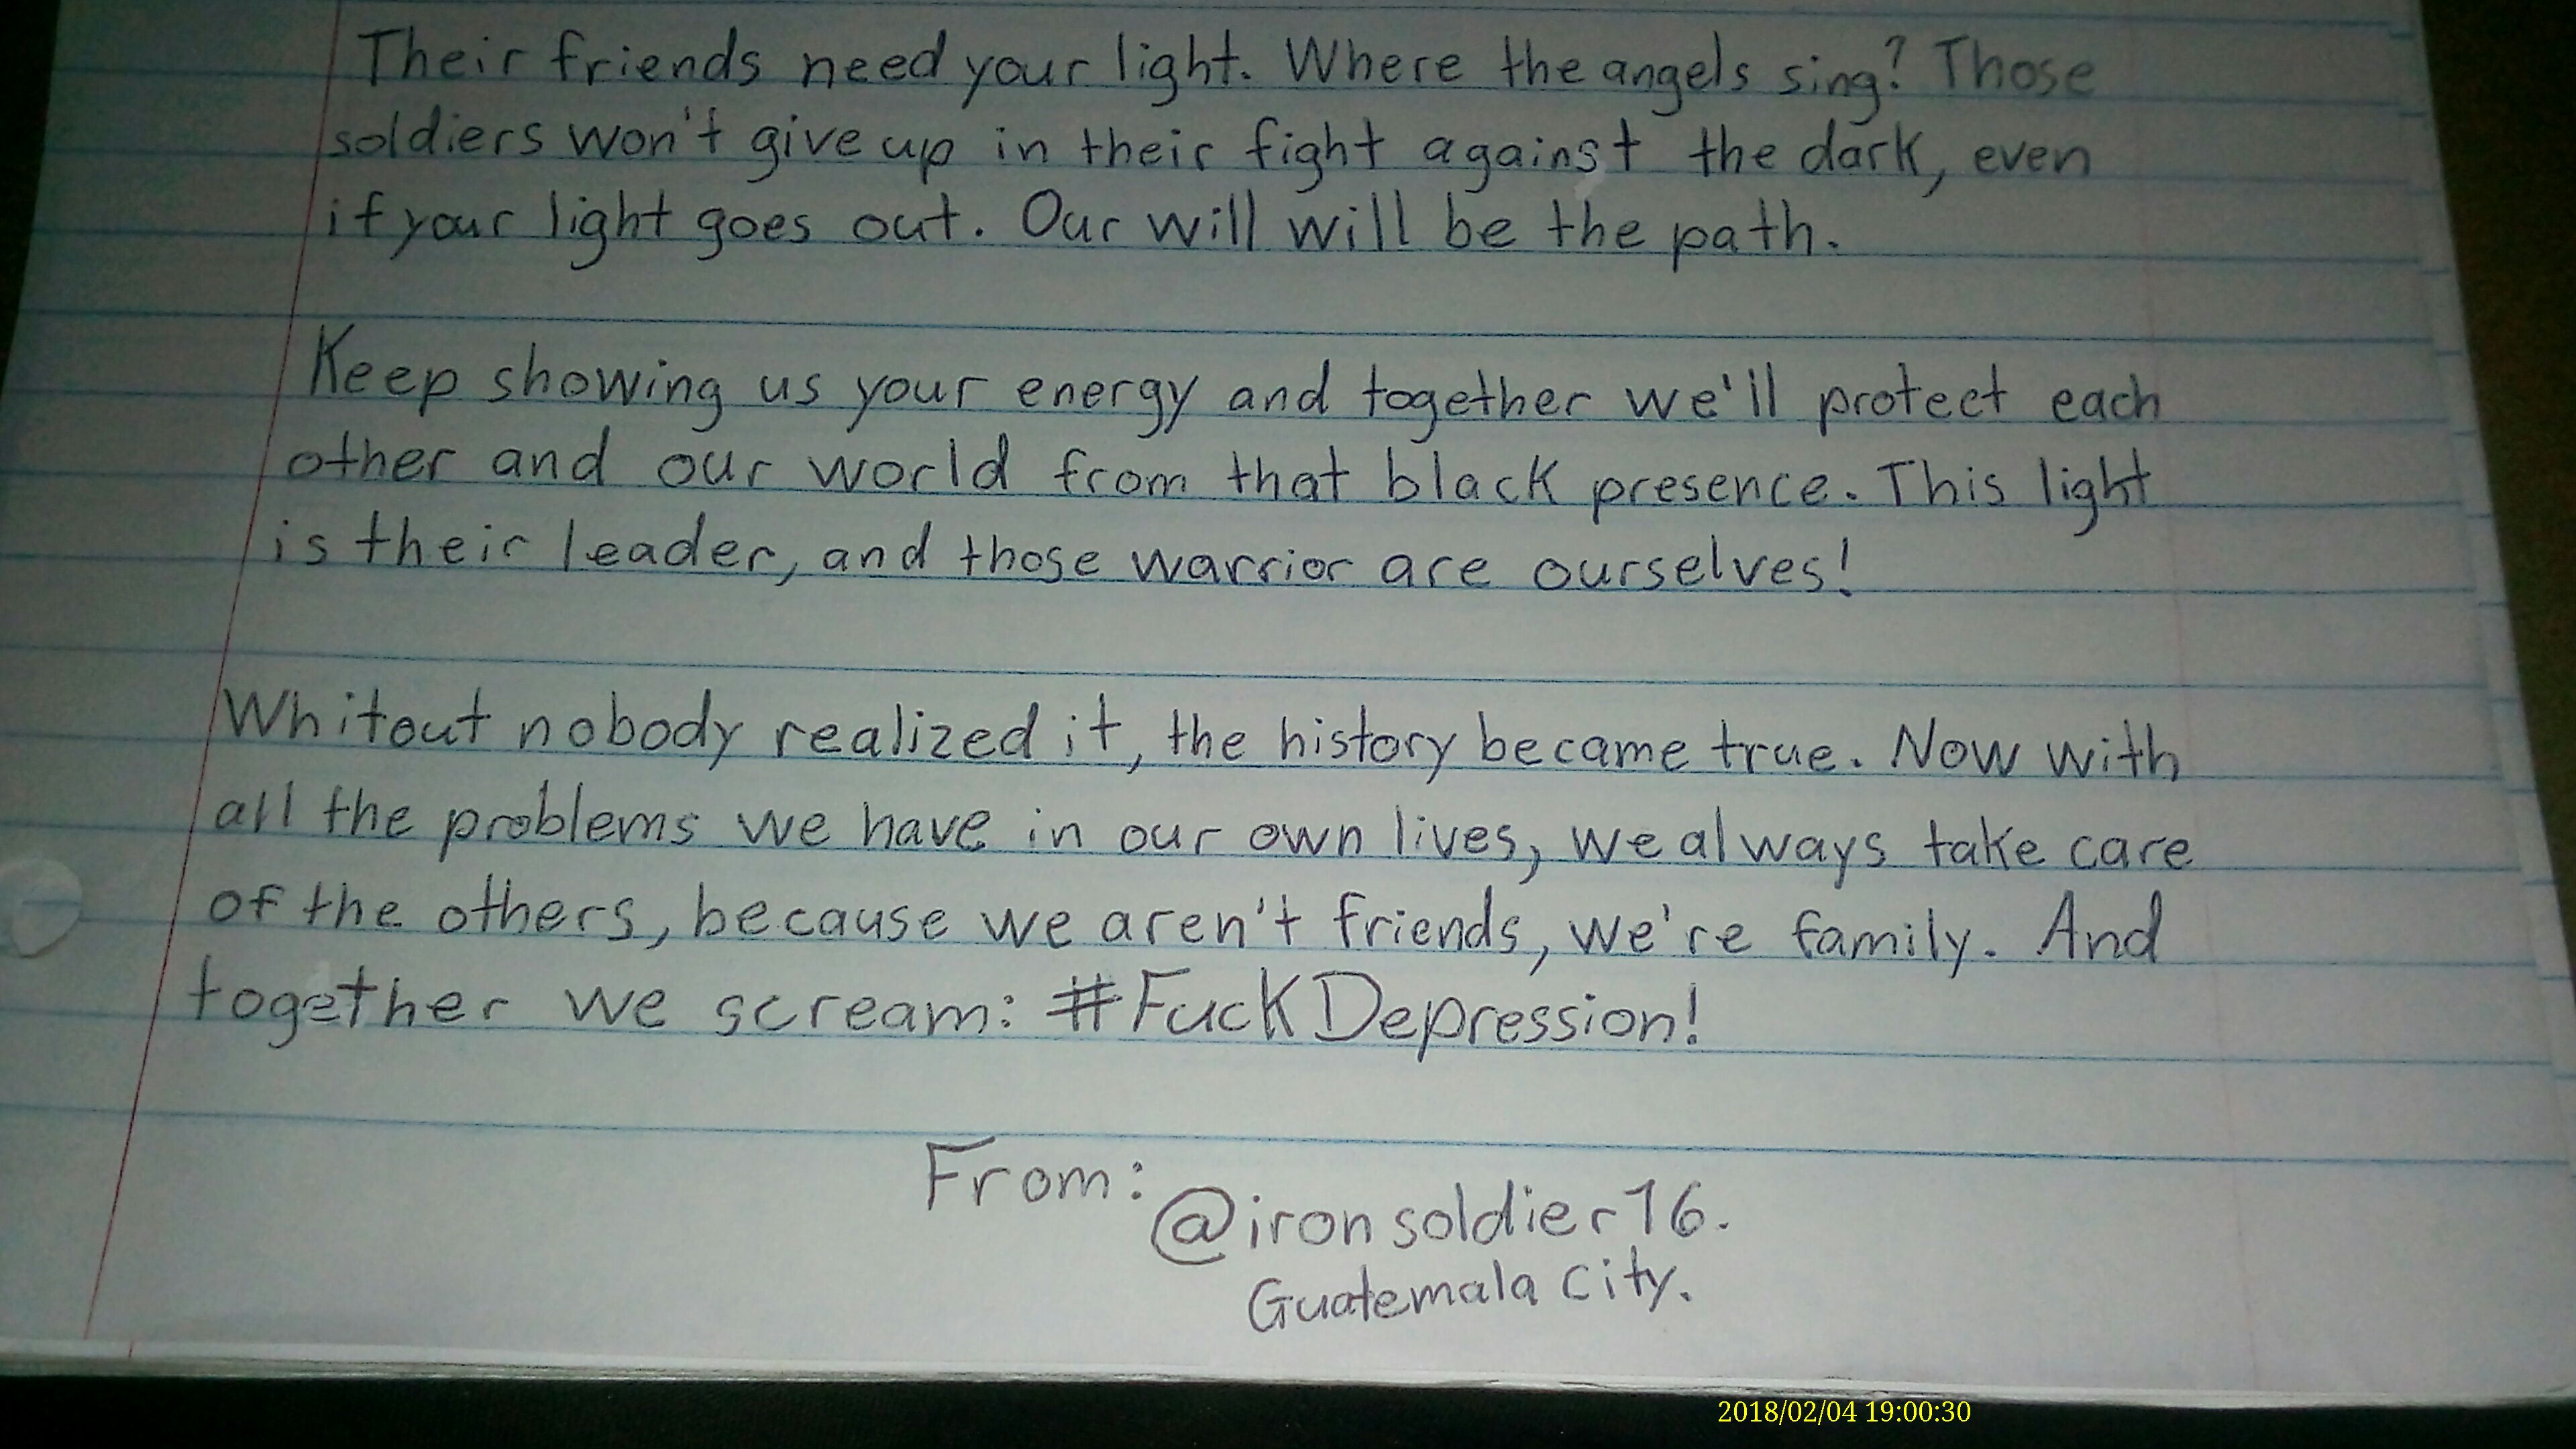 Their friends need your light. Where the angels sing? Those
soldiers won't give up in their fight against the dark, even
if your light goes out. Our will will be the path.
Keep showing us your energy and together we'll protect each
other and our world from that black presence. This light
is their leader, and those warrior are ourselves!
Whitout nobody realized it, the history became true. Now with
all the problems we have in our own lives, we always take care
of the others, because we aren't friends, we're family. And
together we scream: #FuckDepression!
From:
@ironsoldier16.
Guatemala City.
2018/02/04 19:00:30